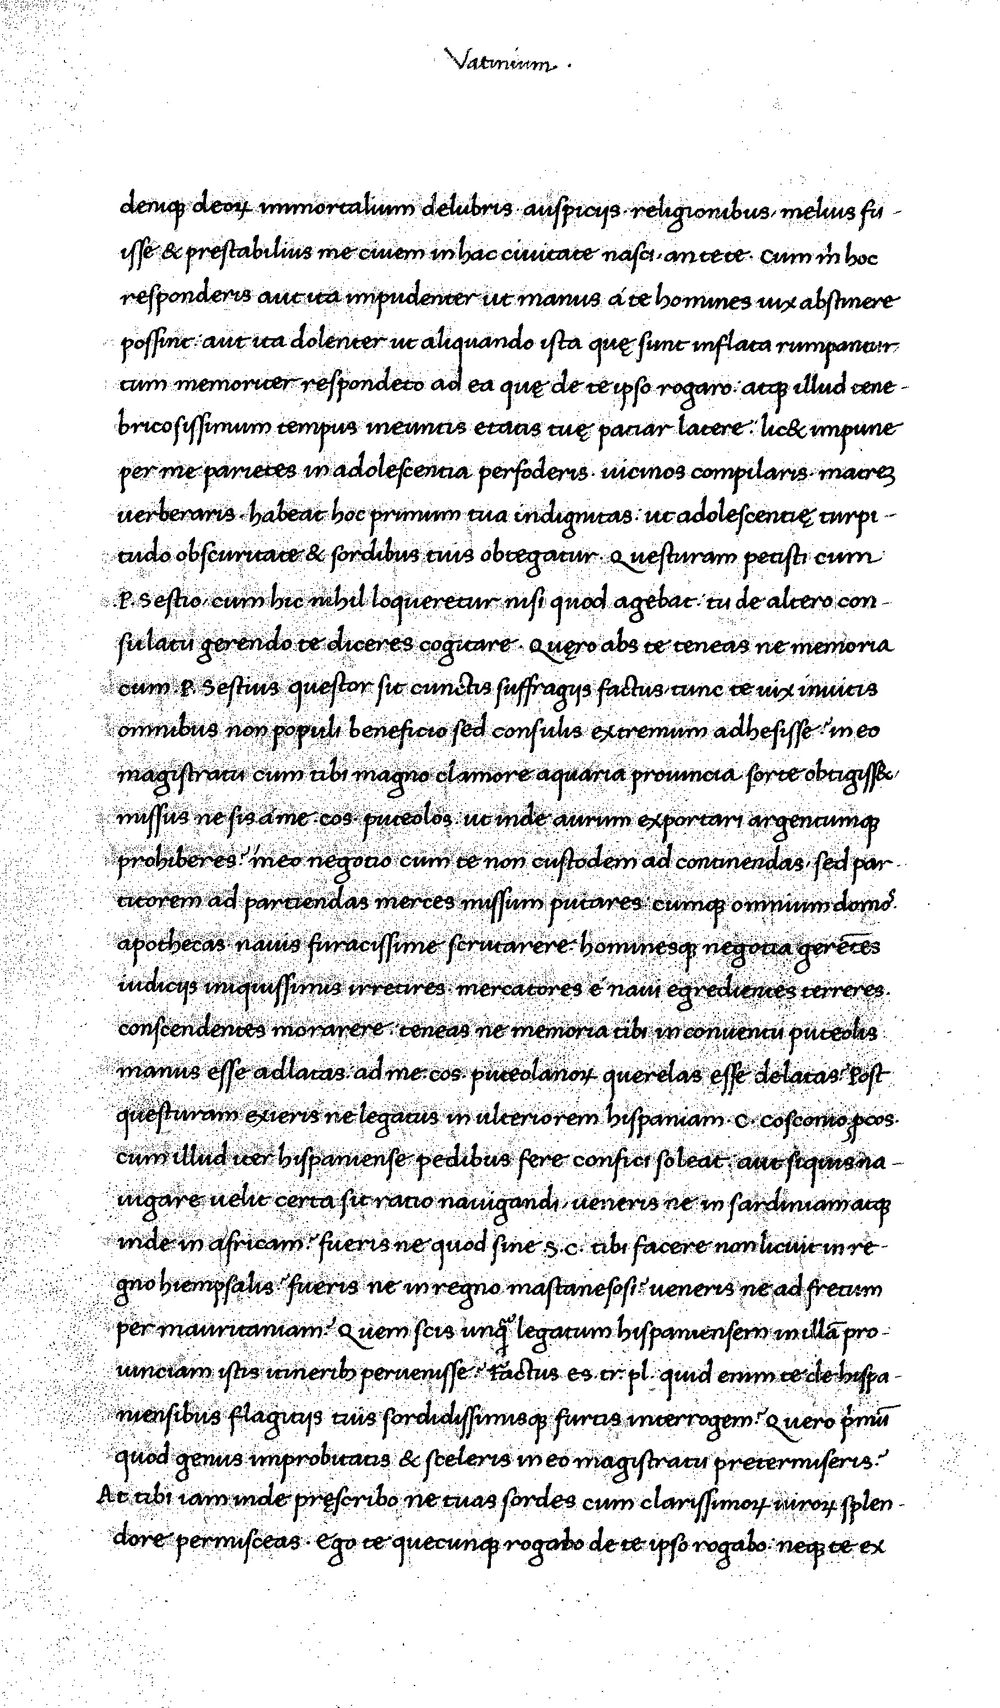 Vatinium .
deniqꝫ deoꝝ immortalium delubris auspicijs religionibus, melius fu-
isse & prestabilius me ciuem in hac ciuitate nasci, an te te. cum m̀ hoc
responderis aut ita impudenter ut manus á te homines uix abstinere
possint: aut ita dolenter ut aliquando ista quę sunt inflata rumpantur,
tum memoriter respondeto ad ea quę de te ipso rogaro: atqꝫ illud tene-
bricosissimum tempus ineuntis etatis tuę patiar latere: lic& impune
per me parietes in adolescentia perfoderis. uicinos compilaris. matreʒ
uerberaris. habeat hoc primum tua indignitas: ut adolescentię turpi-
tudo obscuritate & sordibus tuis obtegatur. Questuram petisti cum
.P. Sestio, cum hic nihil loqueretur nisi quod agebat: tu de altero con-
sulatu gerendo te diceres cogitare. Quęro abs te teneas ne memoria
cum .P. Sestius questor sit cunctis suffragijs factus, tunc te uix inuitis
omnibus non populi beneficio sed consulis extremum adhesisse? in eo
magistratu cum tibi magno clamore aquaria prouincia sorte obtigiss&,
missus ne sis á me .cos. puteolos. ut inde aurum exportari argentumqꝫ
prohiberes? in eo negotio cum te non custodem ad continendas, sed par-
titorem ad partiendas merces missum putares cumqꝫ omnium domos.
apothecas nauis furacissime scrutarere: hominesqꝫ negotia gerētes
iudicijs iniquissimis irretires. mercatores é naui egredientes terreres.
conscendentes morarere. teneas ne memoria tibi in conuentu puteolis
manus esse adlatas: ad me .cos. puteolanoꝝ querelas esse delatas? Post
questuram exieris ne legatus in ulteriorem hispaniam .C. cosconio ꝓcos.
cum illud iter hispaniense pedibus fere confici soleat: aut siquis na-
uigare uelit certa sit ratio nauigandi, ueneris ne in sardiniam atqꝫ
inde in africam? fueris ne quod sine .S.C. tibi facere non licuit in re-
gno hiempsalis? fueris ne in regno mastanesosi? ueneris ne ad fretum
per mauritaniam? Quem scis unq̄ legatum hispaniensem in illā pro-
uinciam istis itinerib; peruenisse? Factus es .tr. pl. quid enim te de hispa-
niensibus flagitijs tuis sordidissimisqꝫ furtis interrogem? Quero p̀mū
quod genus improbitatis & sceleris in eo magistratu pretermiseris?
At tibi iam inde pręscribo ne tuas sordes cum clarissimoꝝ uiroꝝ splen-
dore permisceas. Ego te quecunqꝫ rogabo de te ipso rogabo: neqꝫ te ex